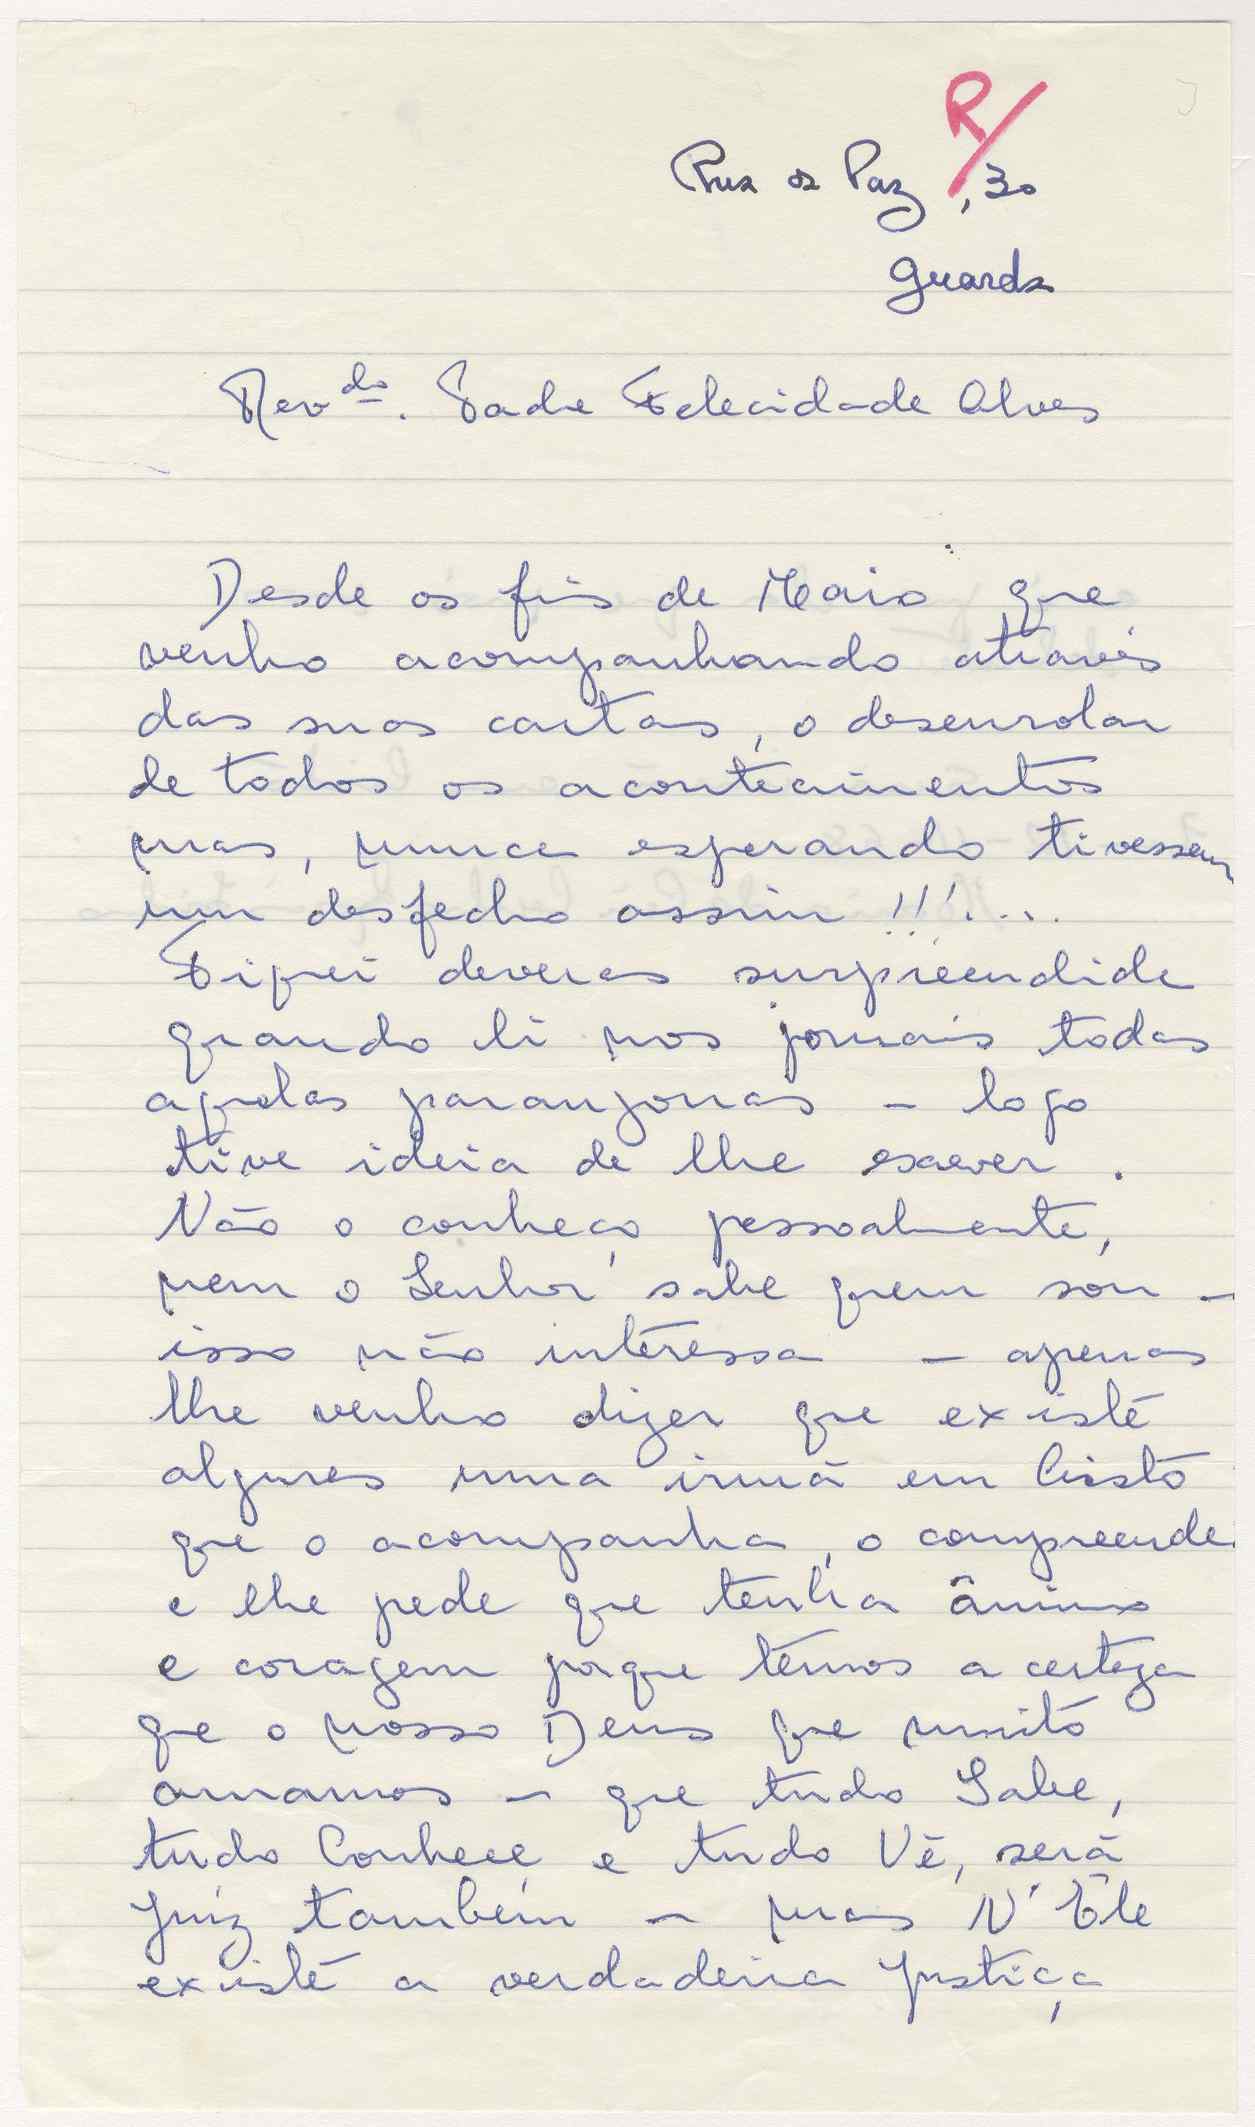 R/
Rua da Paz, 30
Guarda
Revdo. Padre Felecidade Alves
Desde os fins de Maio que
venho acompanhando através
das suas cartas, o desenrolar
de todos os acontecimentos
mas, nunca esperando tivessem
um desfecho assim !!!...
Fiquei deveras surpreendida
quando li nos jornais todas
aquelas parangonas – logo
tive ideia de lhe escrever.
Não o conheço pessoalmente,
nem o Senhor sabe quem sou –
isso não interessa – apenas
lhe venho dizer que existe
algures uma irmã em Cristo
que o acompanha, o compreende
e lhe pede que tenha ânimo
e coragem porque temos a certeza
que o nosso Deus que muito
amamos – que tudo Sabe,
tudo Conhece e tudo Vê, será
Juiz também – mas N'Êle
existe a verdadeira Justiça